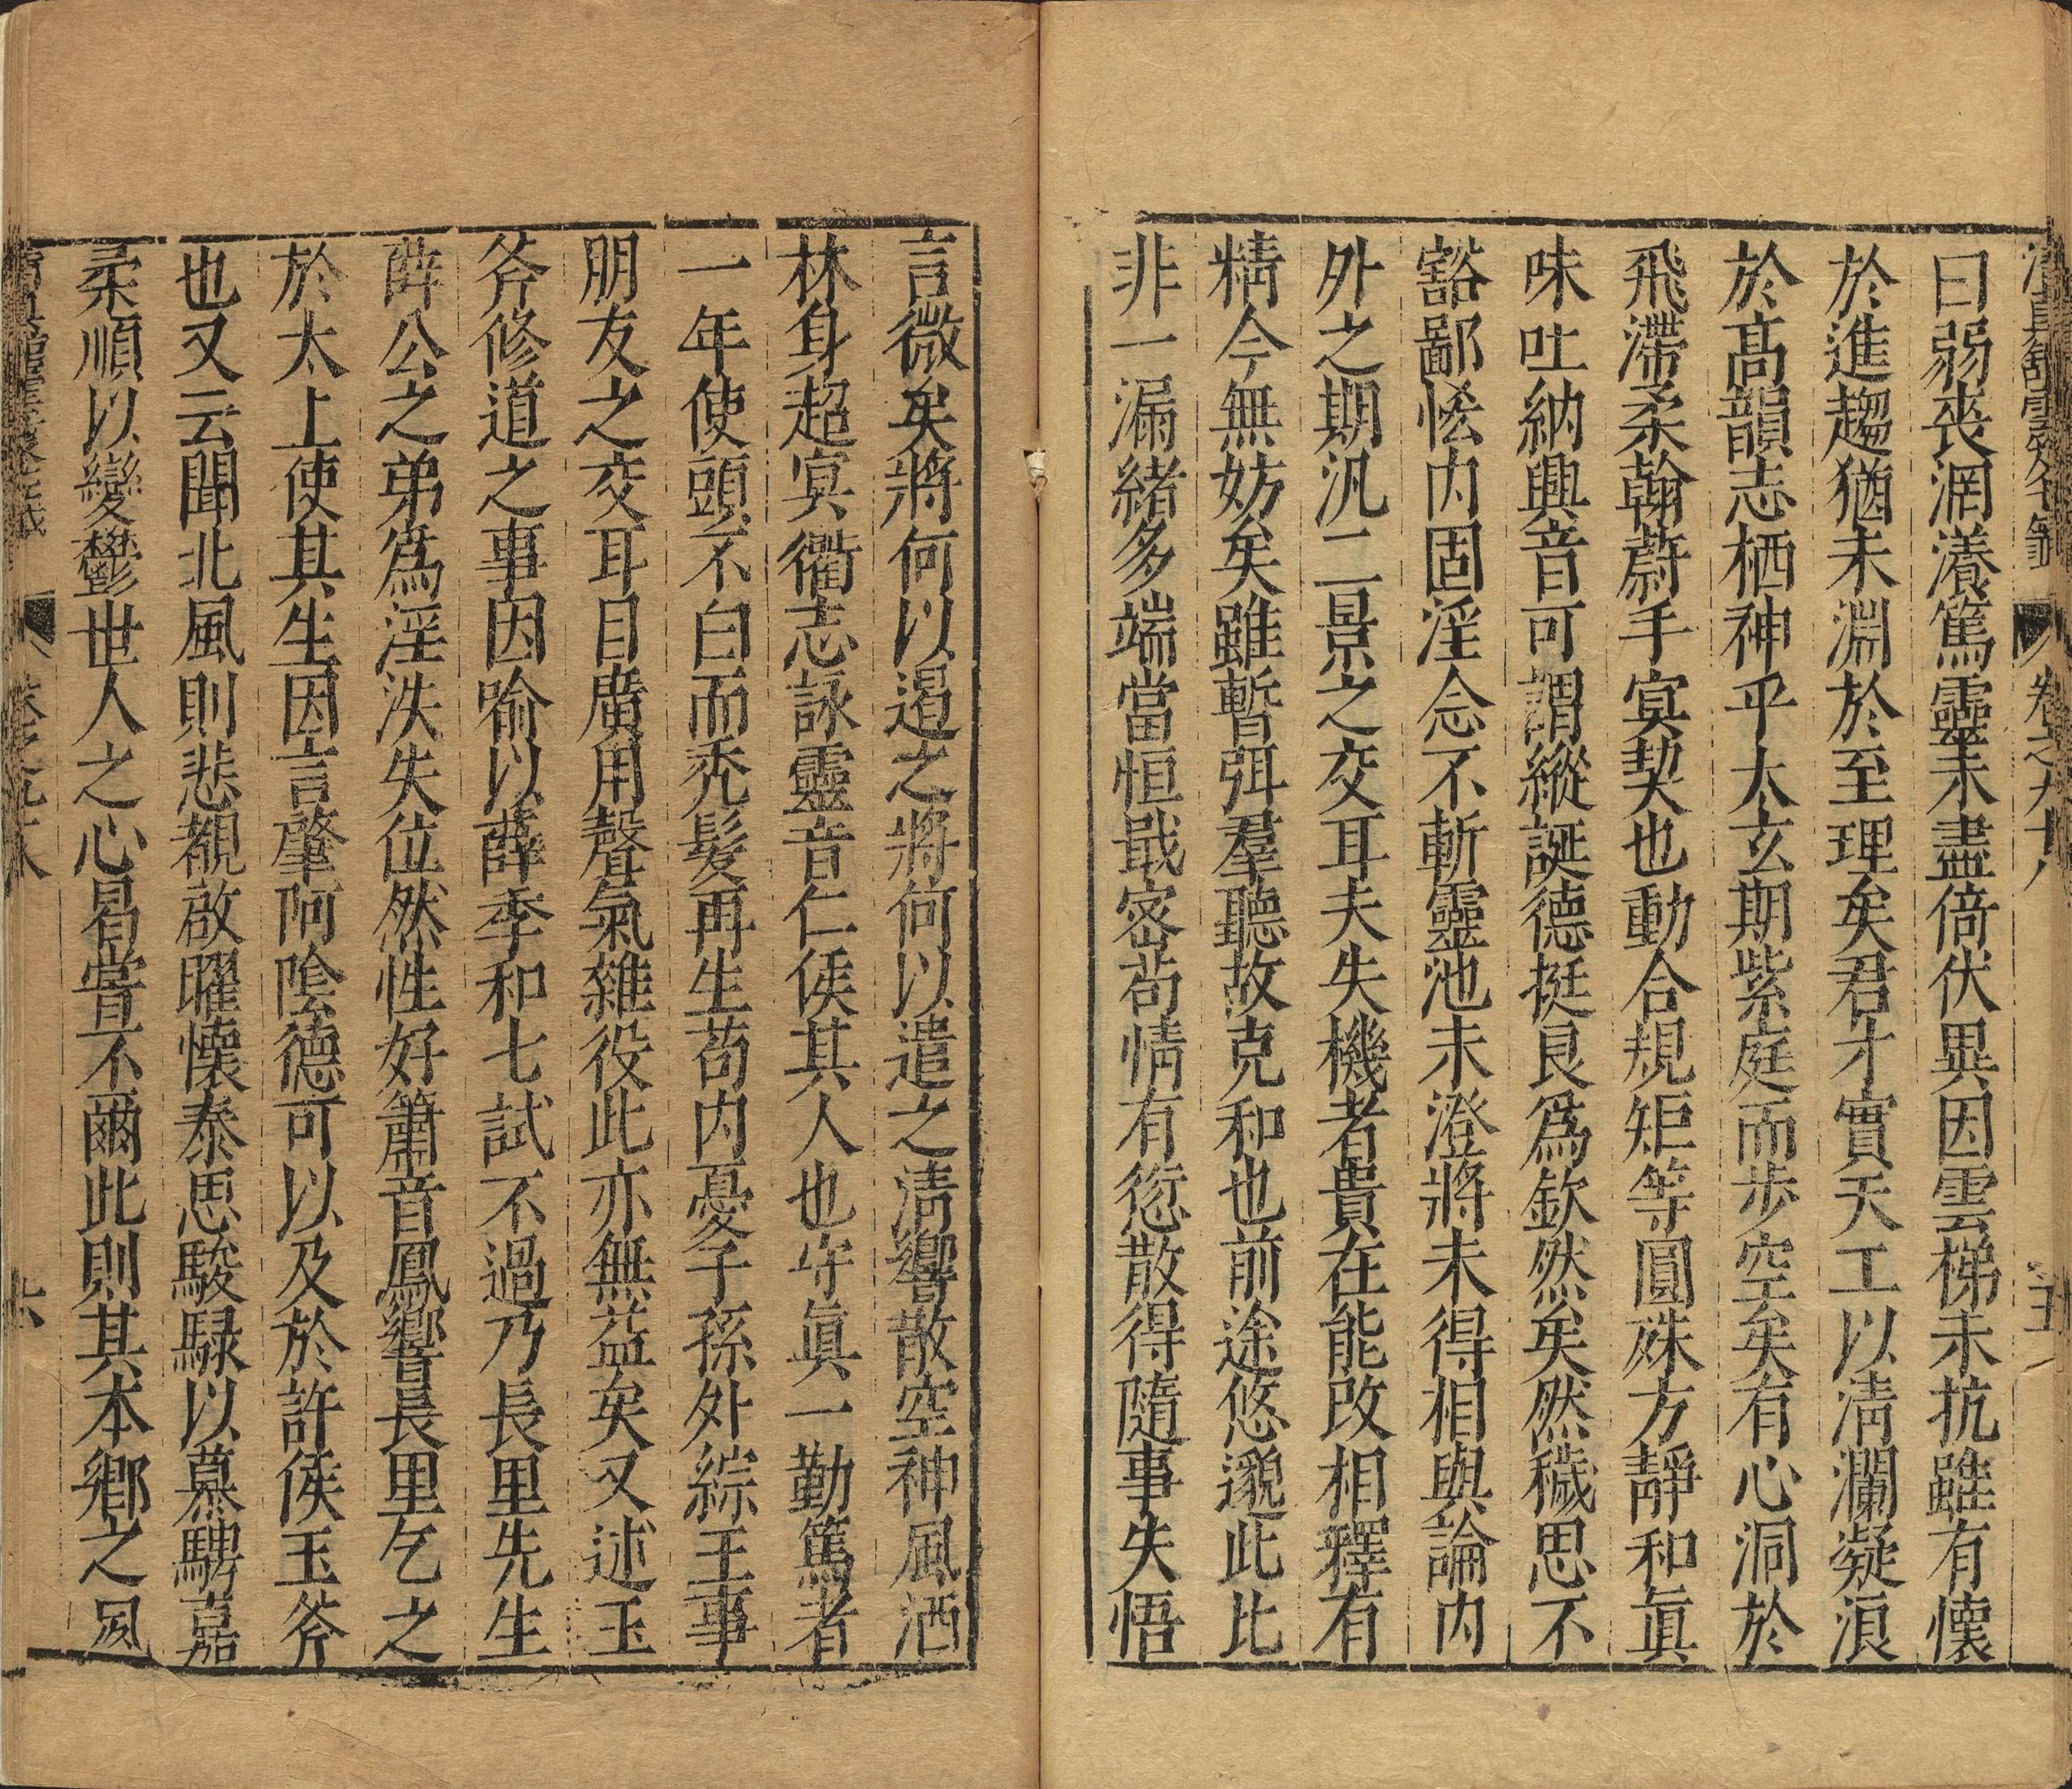 曰弱喪溷瀁篤靈未盡倚伏異因雲梯未抗雖有懷
於進趨猶未淵於至理矣君才實天工以清瀾凝浪
於高韻志栖神乎太玄期紫庭而步空矣有心洞於
飛滯柔翰蔚手㝠契也動合規矩等圓殊方靜和眞
味吐納興音可謂縱誕德挺艮爲欽然矣然穢思不
豁鄙恡内固淫念不斬靈池未澄將未得相與論内
外之期汎二景之交耳夫失機者貴在能改相釋有
精今無妨矣雖暫弭羣聽故克和也前途悠邈此比
非一漏緒多端當恒戢宻苟情有愆散得隨事失悟
言微矣將何以遏之將何以遣之清響散空神風洒
林身超㝠衢志詠靈音仁侯其人也守眞一勤篤者
一年使頭不白而秃髮再生苟内憂子孫外綜王事
朋友之交耳目廣用聲氣雜役此亦無益矣又述玉
斧修道之事因喻以薛季和七試不過乃長里先生
薛公之弟爲淫泆失位然性好簫音鳳響長里乞之
於太上使其生因言肇阿陰德可以及於許侯玉斧
也又云聞北風則悲覩啟曜懷泰思駿騄以慕騁嘉
柔順以變鬱世人之心曷嘗不爾此則其本鄉之風